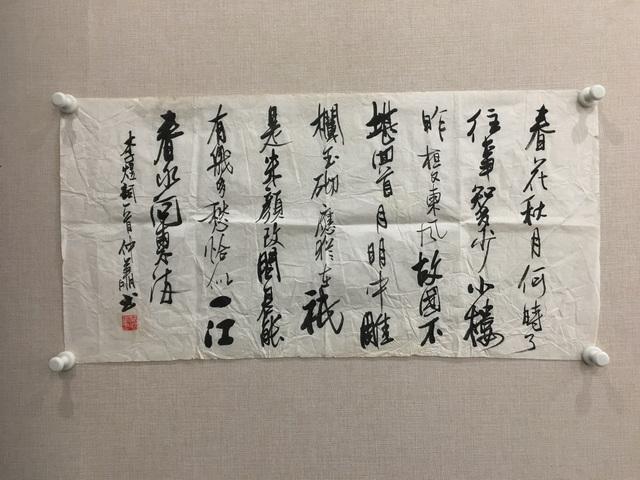 春花秋月何時了
往事知多少小樓
昨夜東風故國不
堪回首月明中雕
欄玉砌應猶在祇
是朱顏改問君能
有幾多愁恰似一江
春水向東流
李煜詞一首仲書